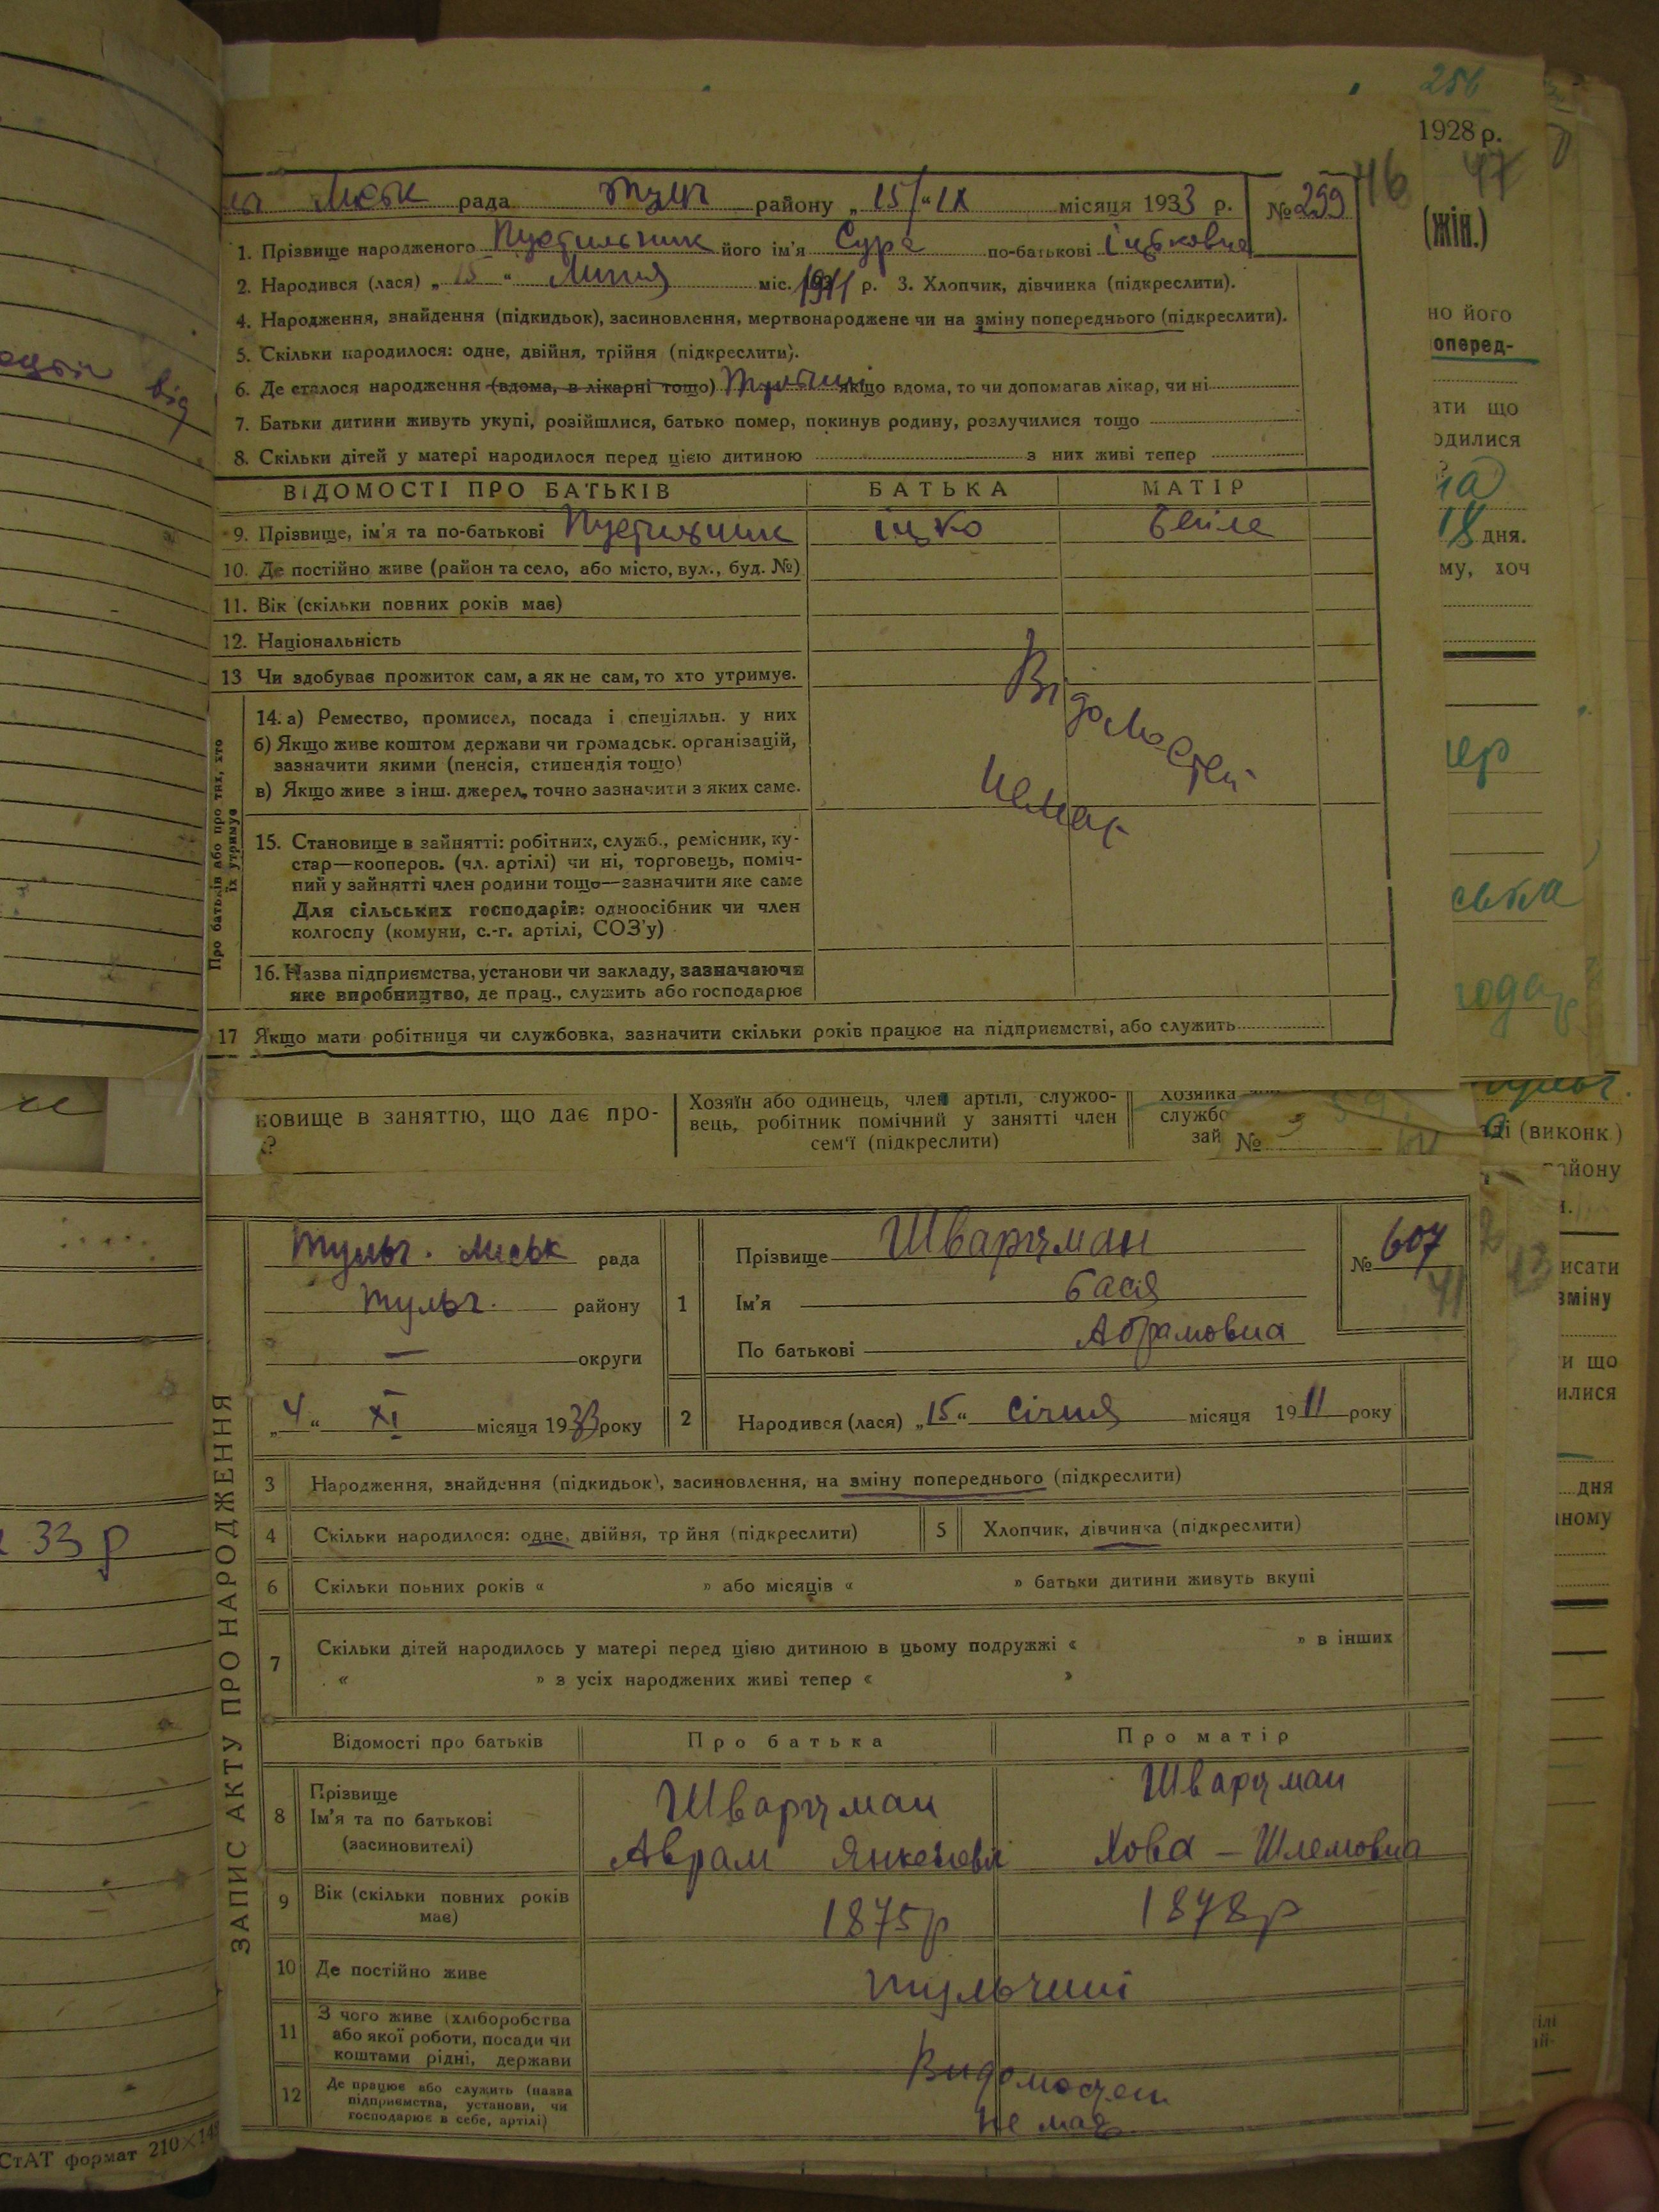 256
1928 р.
47
46
Міськ рада Тульч району „15/“ IX місяця 1933 р. № 299
(жін.)
1. Прізвище народженого Пустильник його ім'я Сура по-батькові Іцьковна
2. Народився (лася) „15“ Липня міс. 1911 р. 3. Хлопчик, дівчинка (підкреслити).
4. Народження, знайдення (підкидьок), засиновлення, мертвонароджене чи на зміну попереднього (підкреслити).
5. Скільки народилося: одне, двійня, трійня (підкреслити).
6. Де сталося народження (вдома, в лікарні тощо) Тульчині якщо вдома, то чи допомагав лікар, чи ні
7. Батьки дитини живуть укупі, розійшлися, батько помер, покинув родину, розлучилися тощо
8. Скільки дітей у матері народилося перед цією дитиною з них живі тепер
ВІДОМОСТІ ПРО БАТЬКІВ БАТЬКА МАТІР
9. Прізвище, ім'я та по-батькові Пустильник Іцко Бейла
10. Де постійно живе (район та село, або місто, вул., буд. №)
11. Вік (скільки повних років має)
12. Національність
13 Чи здобуває прожиток сам, а як не сам, то хто утримує.
Відомостей
немає
Про батьків або про тих, хто їх утримує
14. а) Ремество, промисел, посада і спеціяльн. у них
б) Якщо живе коштом держави чи громадськ. організацій,
зазначити якими (пенсія, стипендія тощо)
в) Якщо живе з інш. джерел, точно зазначити з яких саме.
15. Становище в зайнятті: робітник, служб., ремісник, ку-
стар—кооперов. (чл. артілі) чи ні, торговець, поміч-
ний у зайнятті член родини тощо—зазначити яке саме
Для сільських господарів: одноосібник чи член
колгоспу (комуни, с.-г. артілі, СОЗ'у)
16. Назва підприємства, установи чи закладу, зазначаючи
яке виробництво, де прац., служить або господарює
17 Якщо мати робітниця чи службовка, зазначити скільки років працює на підприємстві, або служить
но його
оперед-
ати що
одилися
18 дня.
му, хоч
ковище в заняттю, що дає про-
Хозяїн або одинець, член артілі, служоо-
вець, робітник помічний у занятті член
сем'ї (підкреслити)
№
(виконк.)
району
ЗАПИС АКТУ ПРО НАРОДЖЕННЯ
Тульч. міськ рада
Тульч. району
— округи
„4“ XI місяця 1933 року
1 Прізвище Шварцман
Ім'я Бася
По батькові Абрамовна
№ 607
41
2 Народився (лася) „15“ Січня місяця 1911 року
3 Народження, знайдення (підкидьок), засиновлення, на зміну попереднього (підкреслити)
4 Скільки народилося: одне, двійня, тр йня (підкреслити) 5 Хлопчик, дівчинка (підкреслити)
6 Скільки повних років « » або місяців « » батьки дитини живуть вкупі
7 Скільки дітей народилось у матері перед цією дитиною в цьому подружжі « » в інших
« » з усіх народжених живі тепер « »
Відомості про батьків Про батька Про матір
8 Прізвище
Ім'я та по батькові
(засиновителі)
Шварцман
Аврам Янкелеви
Шварцман
Хова – Шлемовна
9 Вік (скільки повних років має) 1875р 1878р
10 Де постійно живе Тульчині
11 З чого живе (хліборобства
або якої роботи, посади чи
коштами рідні, держави
12 Де працює або служить (назва
підприємства, установи, чи
господарює в себе, артілі)
Видомостей
не має
33 р
СтАТ формат 210×14
исати
зміну
и що
илися
дня
ному